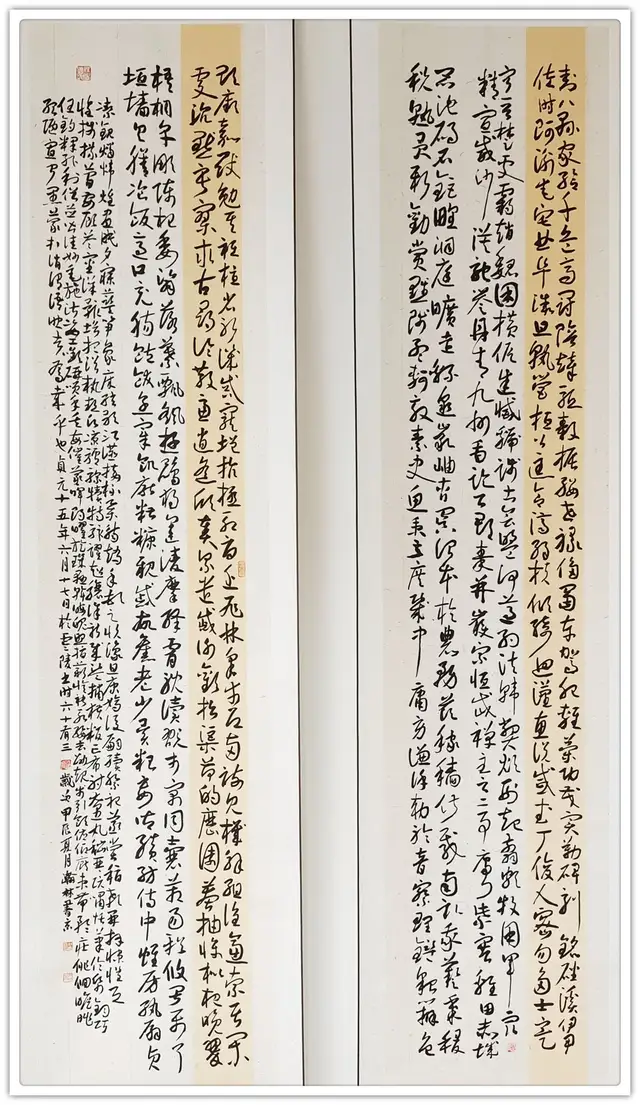 封八縣家給千兵高冠陪輦驅轂振纓世祿侈富車駕肥輕策功茂實勒碑刻銘磻溪伊尹
佐時阿衡奄宅曲阜微旦孰營桓公匡合濟弱扶傾綺迴漢惠說感武丁俊乂密勿多士寔
寧晉楚更霸趙魏困橫假途滅虢踐土會盟何遵約法韓弊煩刑起翦頗牧用軍最
精宣威沙漠馳譽丹青九州禹跡百郡秦并嶽宗恆岱禪主云亭雁門紫塞雞田赤城
昆池碣石鉅野洞庭曠遠緜邈巖岫杳冥治本於農務茲稼穡俶載南畝我藝黍稷
稅熟貢新勸賞黜陟孟軻敦素史魚秉直庶幾中庸勞謙謹敕聆音察理鑑貌辨色
貽厥嘉猷勉其祗植省躬譏誡寵增抗極殆辱近恥林皋幸即兩疏見機解組誰逼索居閑
處沉默寂寥求古尋論散慮逍遙欣奏累遣慼謝歡招渠荷的歷園莽抽條枇杷晚翠
梧桐早凋陳根委翳落葉飄颻遊鵾獨運凌摩絳霄耽讀翫市寓目囊箱易輶攸畏屬耳
垣牆具膳飡飯適口充腸飽飫烹宰飢厭糟糠親戚故舊老少異糧妾御績紡侍巾帷房紈扇員
潔銀燭煒煌晝眠夕寐藍筍象床絃歌酒讌接杯舉觴矯手頓足悅豫且康嫡後嗣續祭祀蒸嘗稽顙再拜悚懼恐
惶牋牒簡要顧答審詳骸垢想浴執熱願涼驢騾犢特駭躍超驤誅斬賊盜捕獲叛亡布射遼丸嵇琴阮嘯恬筆倫紙鈞巧
任釣釋紛利俗並皆佳妙毛施淑姿工顰妍笑年矢每催曦暉朗曜旋璣懸斡晦魄環照指薪脩祜永綏吉劭矩步引領俯仰廊廟束帶矜莊徘徊瞻眺
孤陋寡聞愚蒙等誚謂語助者焉哉乎也貞元十五年六月十七日於零陵書時六十有三 歲次甲辰夏月